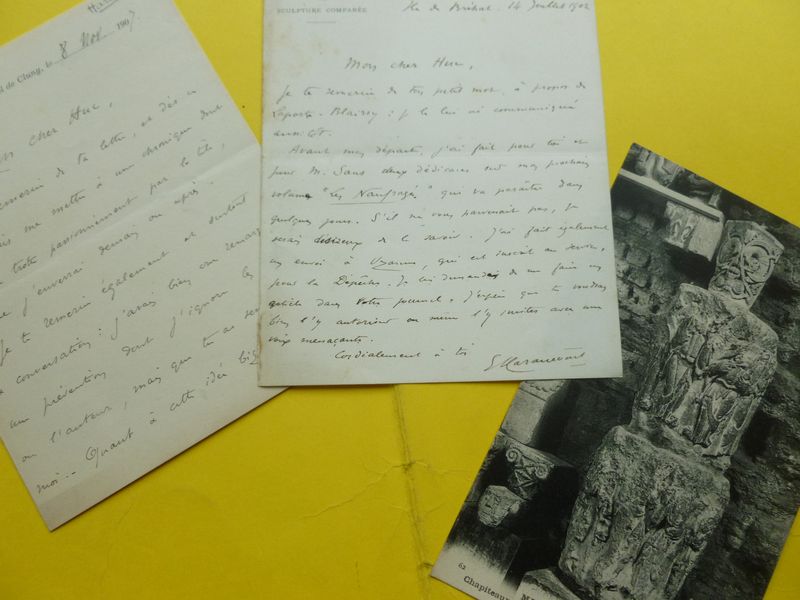 8 Nov. 1907.
de Cluny, le
cher Huc,
de ta lettre, et dès ce
me mettre à une chronique dont
passionnément par le titre,
j'enverrai demain ou après.
Je te remercie également et surtout
conversation : j'avais bien cru remarq
une prévention dont j'ignore les
ou l'auteur, mais que tu as
moi -- Quant à cette idée
SCULPTURE COMPARÉE
Ile de Bréhat. 14 Juillet 1902
Mon cher Huc,
Je te remercie de ton petit mot, à propos de
Laporte-Blairsy : je le lui ai communiqué
aussitôt.
Avant mon départ, j'ai fait pour toi et
pour M. Sans deux dédicaces sur mon prochain
volume "Les Naufragés" qui va paraître dans
quelques jours. S'il ne vous parvenait pas, je
serais désireux de le savoir. J'ai fait également
un envoi à Uzanne, qui est inscrit au service,
pour la Dépêche. Je lui demandai de me faire un
article dans votre journal, j'espère que tu voudras
bien l'y autoriser ou même l'y inviter avec une
voix menaçante.
Cordialement à toi
E Haraucourt
62
Chapiteau